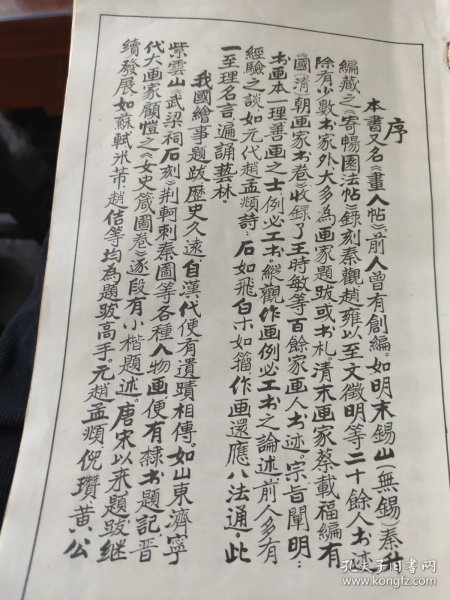 序
本書又名《畫人帖》。前人曾有創編。如明末錫山（無錫）秦升
編藏之《寄暢園法帖》錄刻秦觀趙雍以至文徵明等二十餘人书迹
除有少數书家外大多為画家題跋或书札。清末画家蔡載福編有
《國（清）朝画家书卷》收録了王時敏等百餘家画人书迹。宗旨闡明：
书画本一理善画之士例必工书。縱觀作画例必工书之論述前人多有
經驗之談如元代趙孟頫詩：石如飛白木如籀作画還應八法通，此
一至理名言遍誦藝林。
我國繪事題跋歷史久遠，自漢代便有遺蹟相傳。如山東濟寧
紫雲山《武梁祠石刻》荆軻刺秦圖等各種人物画便有隸书題記。晋
代大画家顧愷之《女史箴圖卷》逐段有小楷題述。唐宋以來題跋继
續發展，如蘇軾米芾、趙佶等均為題跋高手。元趙孟頫、倪瓚黄公
孔夫子旧书网